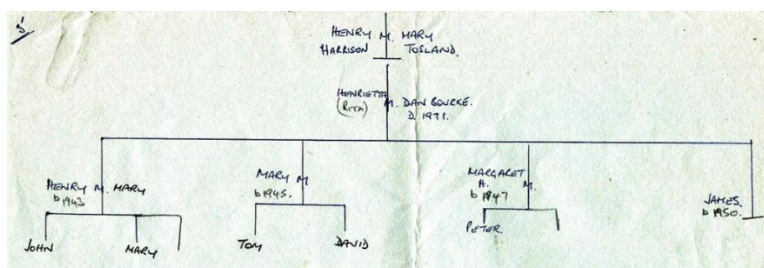 5
HENRY M. MARY
HARRISON TOSLAND.
HENRIETTA M. DAN BOURKE.
(RITA) D. 1971.
HENRY M. MARY
b 1943
MARY M
b 1945.
MARGARET
H. M.
b 1947
JAMES.
b 1950.
JOHN MARY
TOM DAVID
PETER.